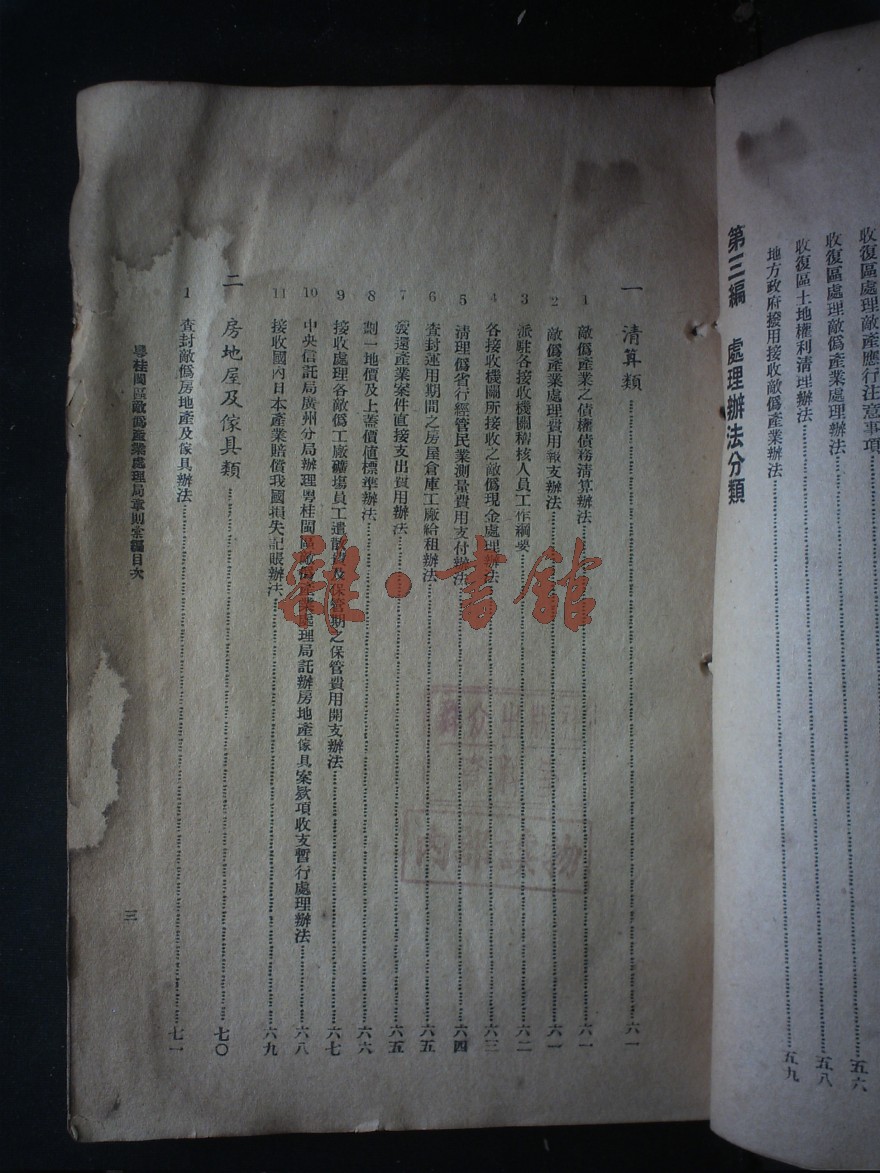 收復區處理敵產應行注意事項
收復區處理敵僞產業處理辦法……五六
收復區土地權利清理辦法……五八
地方政府撥用接收敵僞產業辦法……五九
第三編　處理辦法分類
一　清算類……六一
1　敵僞產業之債權債務清算辦法……六一
2　敵僞產業處理費用報支辦法……六一
3　派駐各接收機關稽核人員工作綱要……六二
4　各接收機關所接收之敵僞現金處理辦法……六三
5　清理僞省行經管民業測量費用支付辦法……六四
6　查封運用期間之房屋倉庫工廠給租辦法……六五
7　發還產業案件直接支出費用辦法……六五
8　劃一地價及上蓋價值標準辦法……六六
9　接收處理各敵僞工廠礦塲員工遣散費及保管期之保管費用開支辦法……六七
10　中央信託局廣州分局辦理粵桂閩區敵僞產業處理局託辦房地產傢具案欵項收支暫行處理辦法……六八
11　接收國內日本產業賠償我國損失記賬辦法……六九
二　房地屋及傢具類……七〇
1　查封敵僞房地產及傢具辦法……七一
粵桂閩區敵僞產業處理局章則彙編目次
三
雜·書館
內部讀物